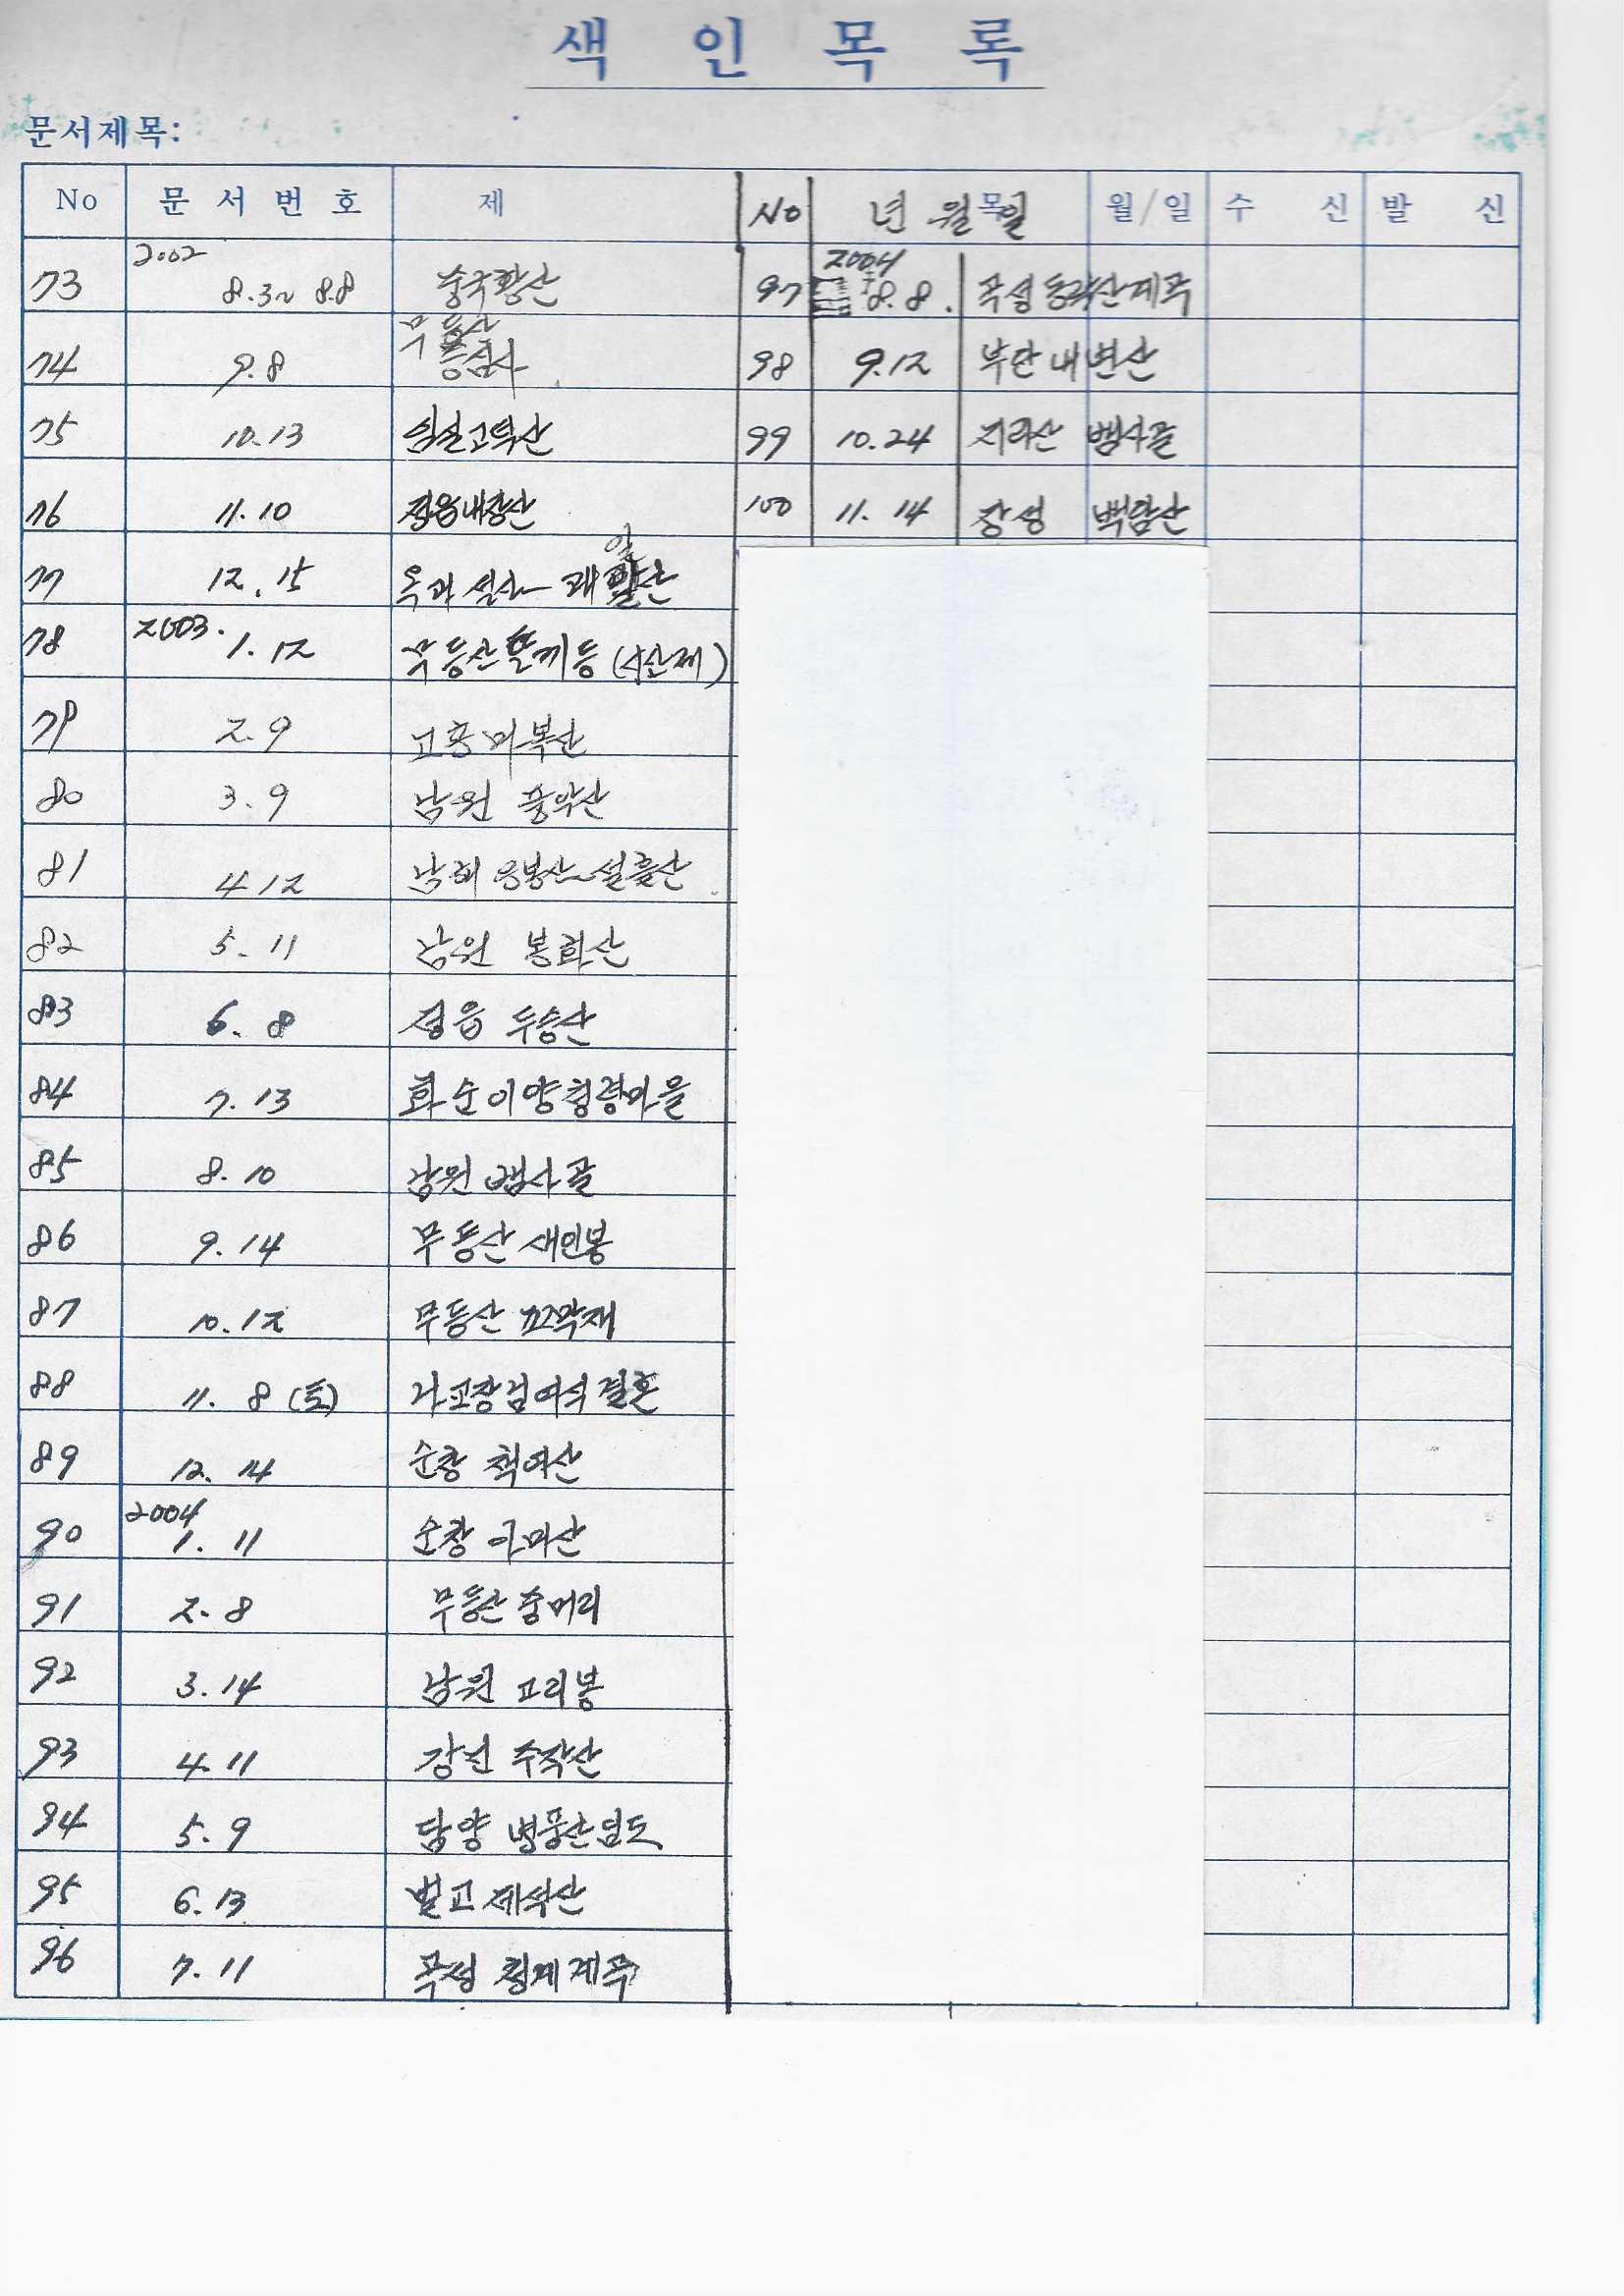 색 인 목 록
문서제목:
No 문 서 번 호 제 No 년 월 목 일 월/일 수 신 발 신
73 2002 8.3~8.8 중국황산 97 2004 8.8. 곡성동악산계곡
74 9.8 무등산 증심사 98 9.12 부안내변산
75 10.13 임실고덕산 99 10.24 지리산 뱀사골
76 11.10 정읍내장산 100 11.14 장성 백암산
77 12.15 옥과 설산~괘일산
78 2003. 1.12 무등산토끼등(시산제)
79 2.9 고흥마복산
80 3.9 남원 풍악산
81 4 12 남해 응봉산~설흘산
82 5.11 남원 봉화산
83 6.8 정읍 두승산
84 7.13 화순이양청룡마을
85 8.10 남원 뱀사골
86 9.14 무등산 새인봉
87 10.12 무등산 꼬막재
88 11.8(토) 여식결혼
89 12.14 순창 책여산
90 2004 1.11 순창 아미산
91 2.8 무등산중머리
92 3.14 남원 고리봉
93 4.11 강진 주작산
94 5.9 담양 병풍산임도
95 6.13 벌교 제석산
96 7.11 곡성 청계계곡